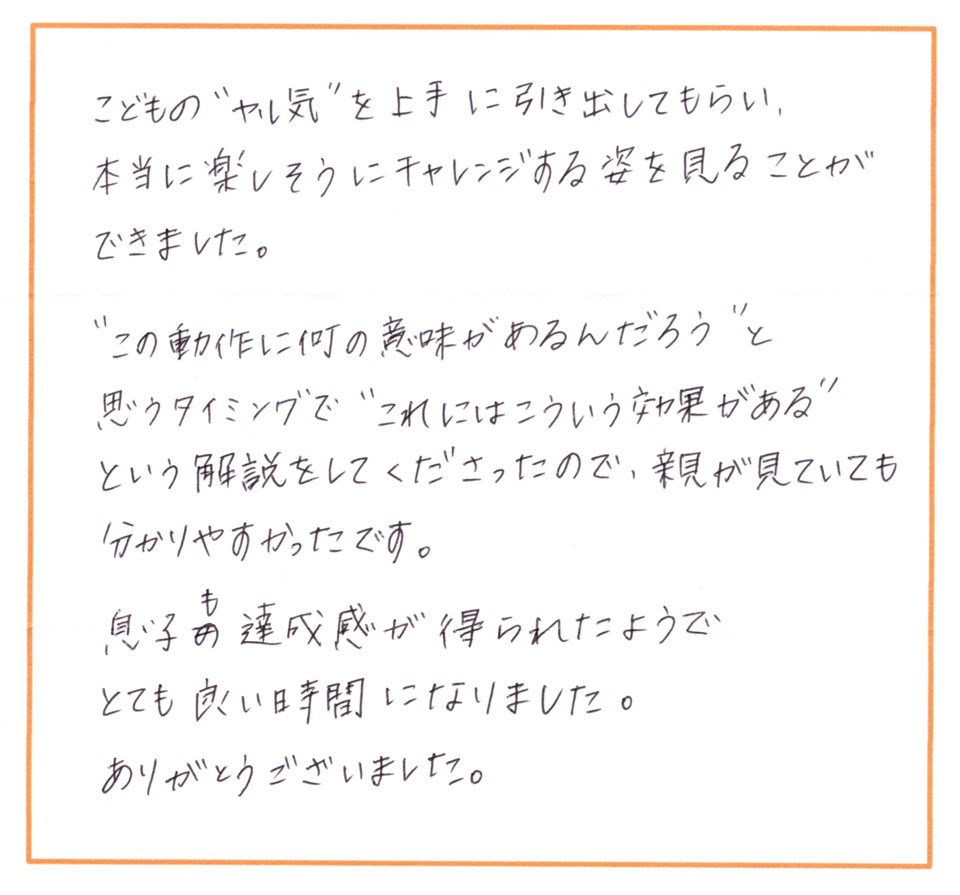 こどもの"やる気"を上手に引き出してもらい、
本当に楽しそうにチャレンジする姿を見ることが
できました。
"この動作に何の意味があるんだろう"と
思うタイミングで"これにはこういう効果がある"
という解説をしてくださったので、親が見ていても
分かりやすかったです。
息子も達成感が得られたようで
とても良い時間になりました。
ありがとうございました。